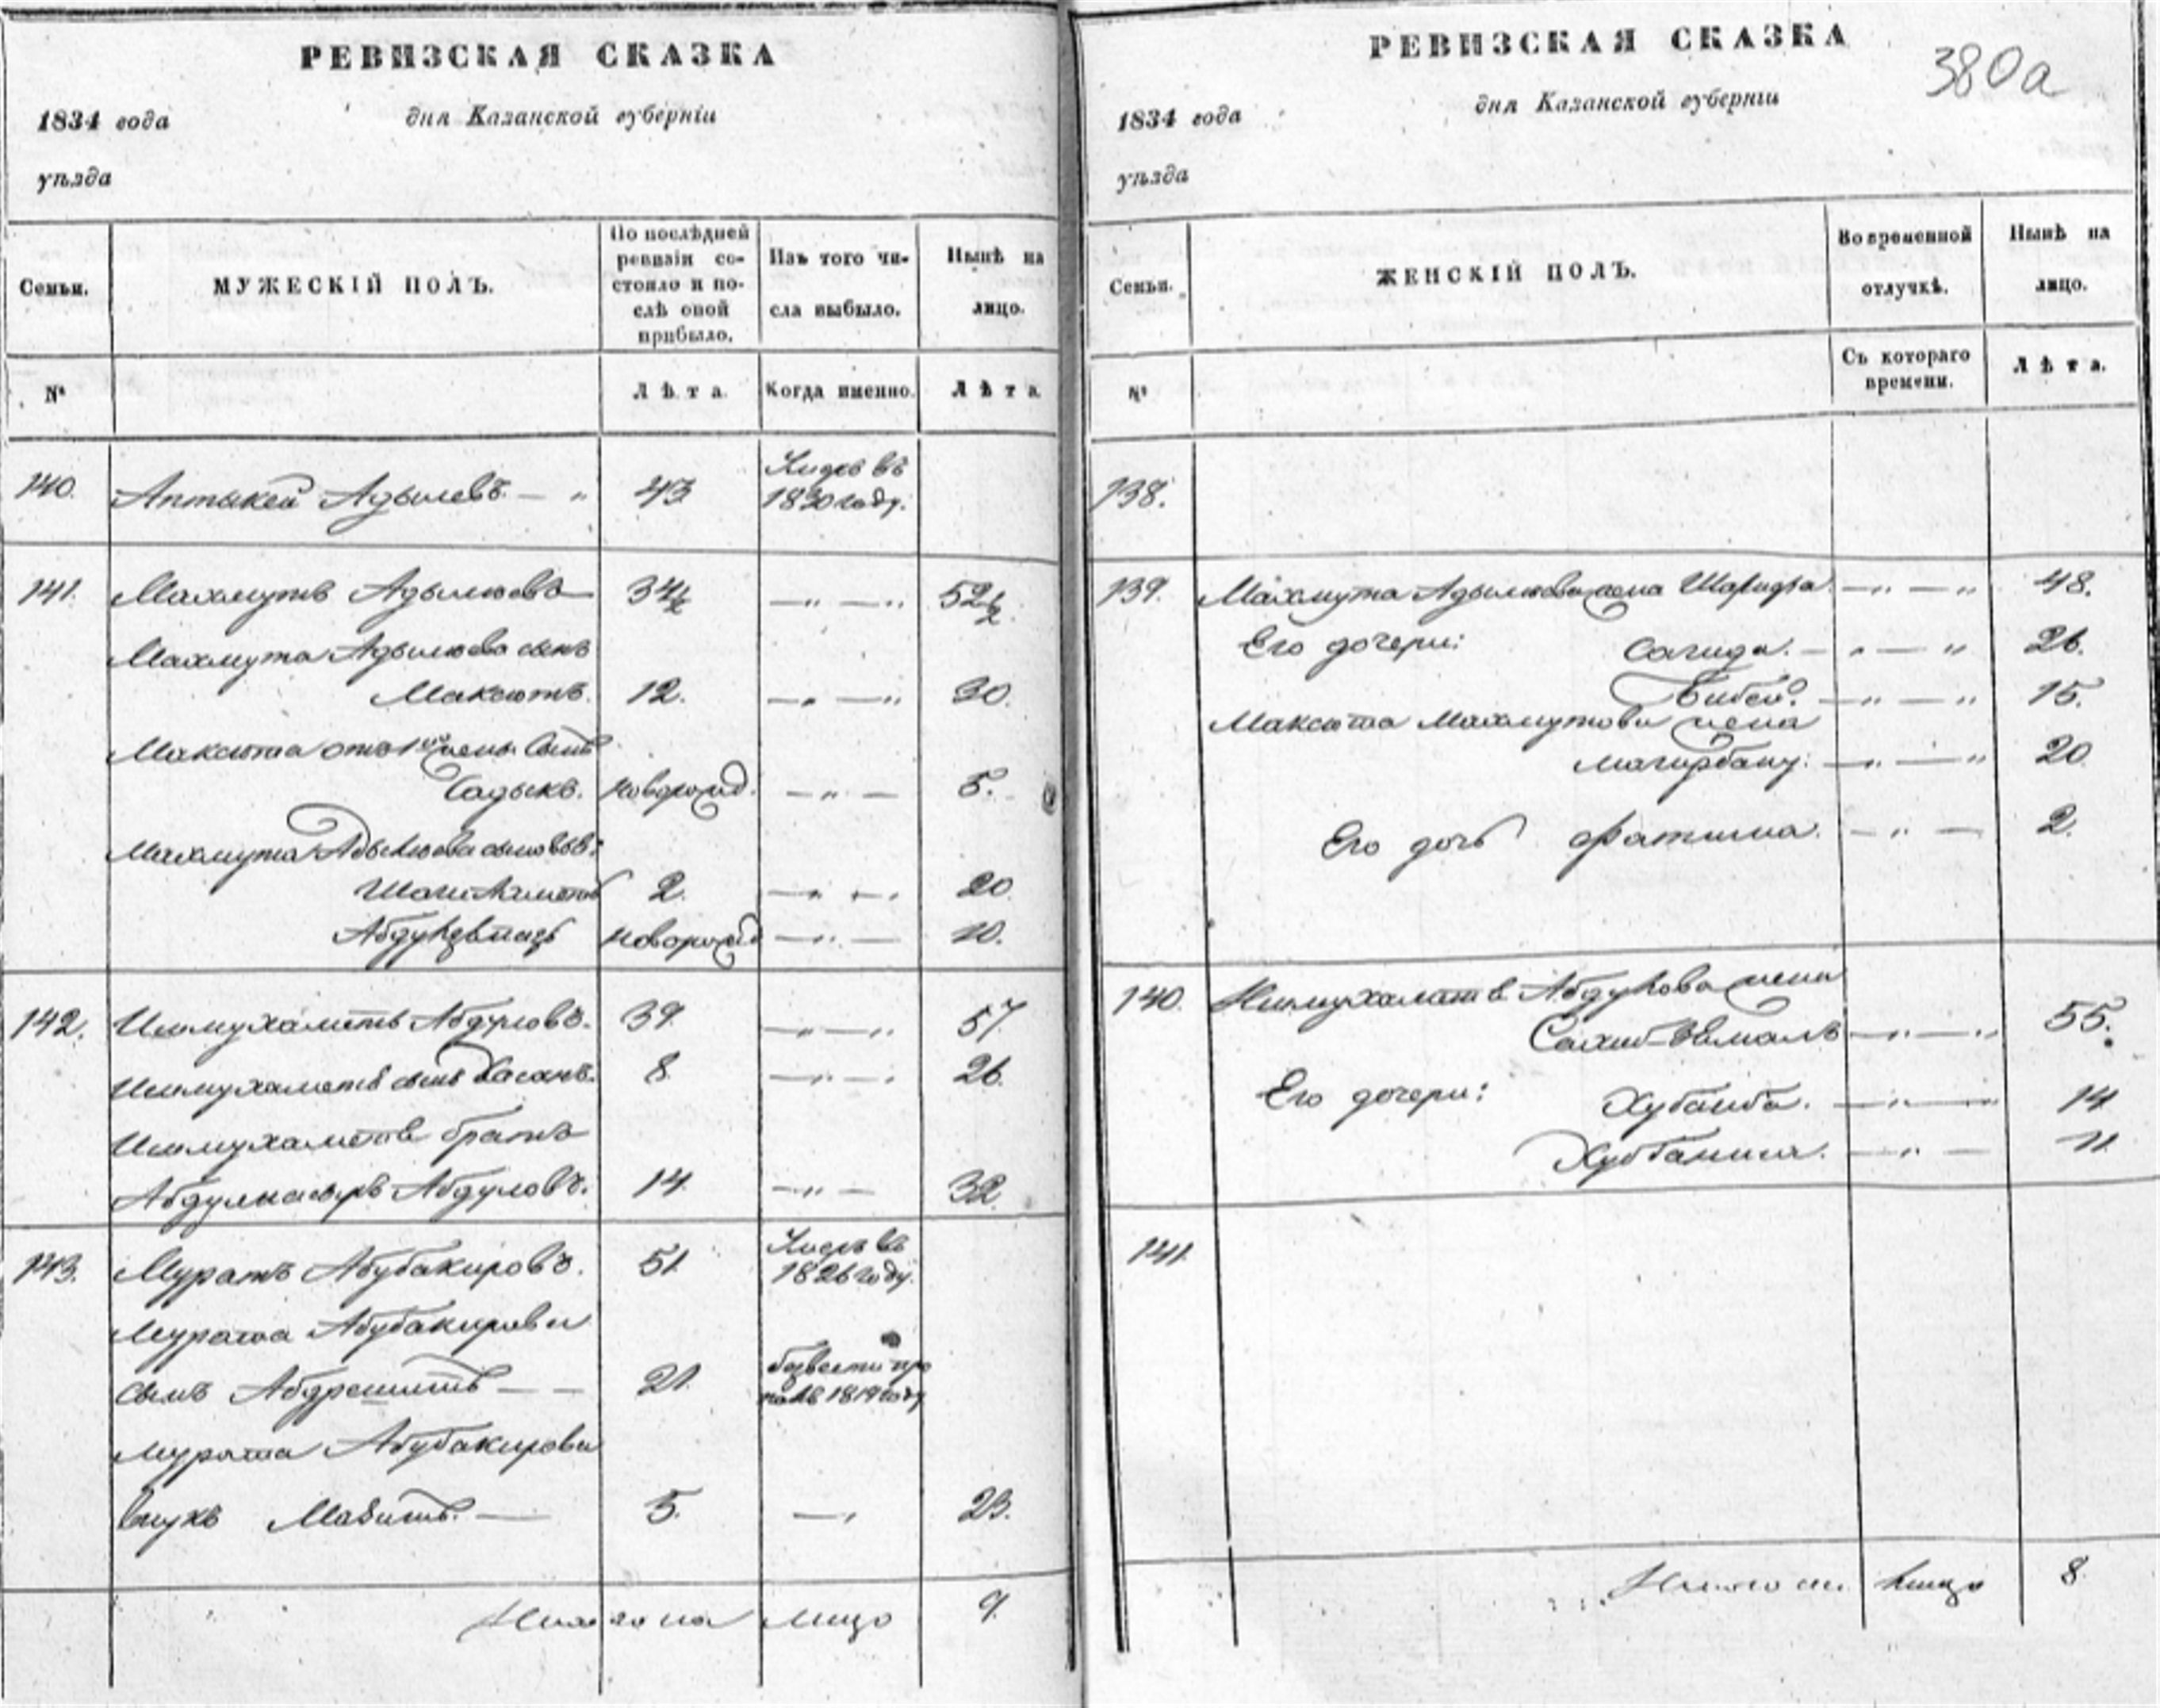 РЕВИЗСКАЯ СКАЗКА
1834 года дня Казанской губерніи
уѣзда
Семьи. МУЖЕСКІЙ ПОЛЪ. По послѣдней ревизіи состояло и послѣ оной прибыло. Изъ того числа выбыло. Нынѣ на лицо.
№ Лѣта. Когда именно. Лѣта
140. Аптыкей Адылевъ — " 43
1830 году.
141. Махмутъ Адылювъ 34½ — " — " 52½
Махмута Адылюва сынъ
Максютъ. 12. — " — " 30.
Максюта отъ 1й жены сынъ
Садыкъ. новорожд. — " — 5.
Махмута Адылюва сыновья:
ШагиАхметъ 2. — " — " 20
новорожд — " — 10.
142. Ишмухаметъ Абдуловъ. 39. — " — " 57.
Ишмухаметъ сынъ Хасанъ. 8. — " — " 26.
Ишмухаметовъ братъ
Абдулнасыръ Абдуловъ. 14. — " — 32.
143. Муратъ Абубакировъ. 51.
1826 году.
Мурата Абубакирова
сынъ Абдрешитъ — — 21. безвести про
палъ 1819 году
Мурата Абубакирова
внукъ Мавитъ. — 5. — " 23.
Итого на лицо 9.
РЕВИЗСКАЯ СКАЗКА
380а
1834 года дня Казанской губерніи
уѣзда
Семьи. ЖЕНСКІЙ ПОЛЪ. Во временной отлучкѣ. Нынѣ на лицо.
№ Съ котораго времени. Лѣта.
138.
139. Махмута Адылюва жена Шарифа. — " — " 48.
Его дочери: Сагида. — " — " 26.
Бибей. — " — " 15.
Максюта Махмутова жена
Магирбану. — " — " 20
Его дочь Фатима. — " — 2.
140. Ишмухаметъ Абдулова жена
— " — " 55.
Его дочери: Хубаиба. — " — 14
— " — 11
141.
Итого на лицо 8.